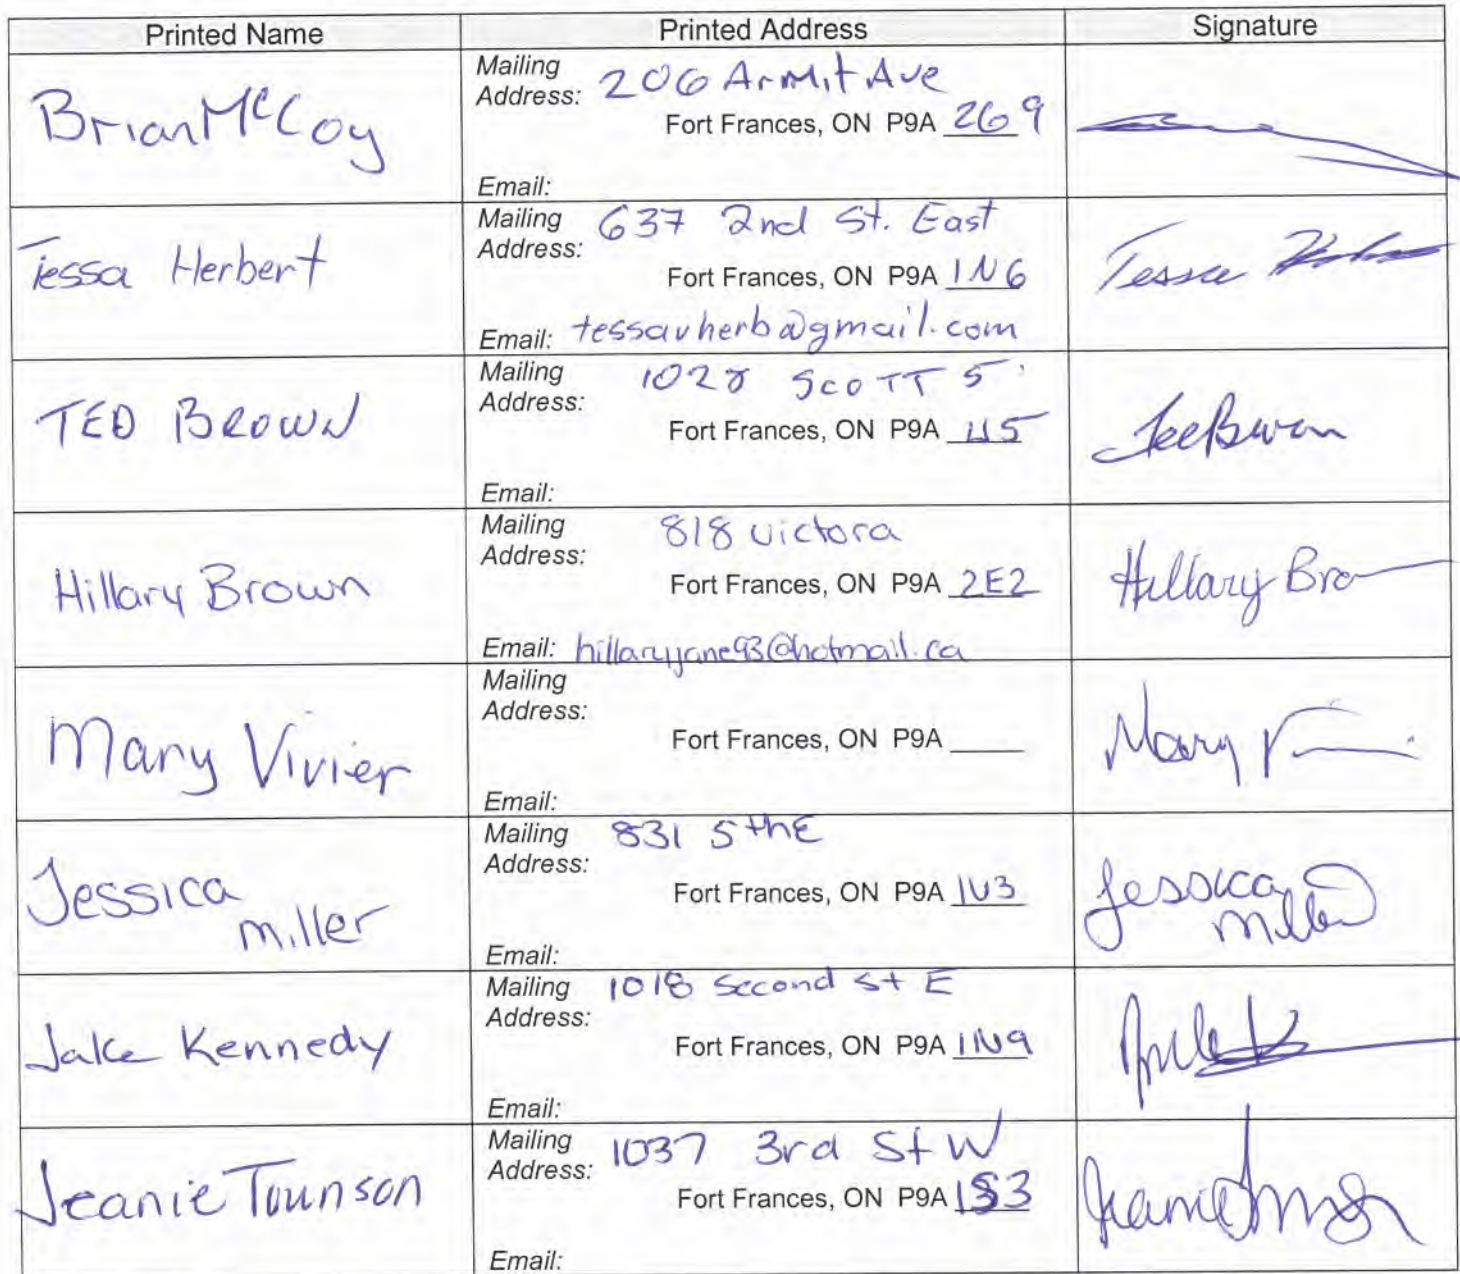 Printed Name Printed Address Signature
Brian McCoy
Mailing Address: 206 Armit Ave
Fort Frances, ON P9A 2G9
Email:
Tessa Herbert
Mailing Address: 637 2nd St. East
Fort Frances, ON P9A 1N6
Email: tessavherb@gmail.com
Tessa
TED BROWN
Mailing Address: 1028 SCOTT S
Fort Frances, ON P9A
Email:
Hillary Brown
Mailing Address: 818 victora
Fort Frances, ON P9A 2E2
Email: hillaryjane93@hotmail.ca
Hillary Bro
Mary Vivier
Mailing Address:
Fort Frances, ON P9A ____
Email:
Mary
Jessica
miller
Mailing Address: 831 5th E
Fort Frances, ON P9A 1V3
Email:
Jessica
Miller
Jake Kennedy
Mailing Address: 1018 Second St E
Fort Frances, ON P9A 1N9
Email:
Jeanie Tounson
Mailing Address: 1037 3rd St W
Fort Frances, ON P9A 1S3
Email: